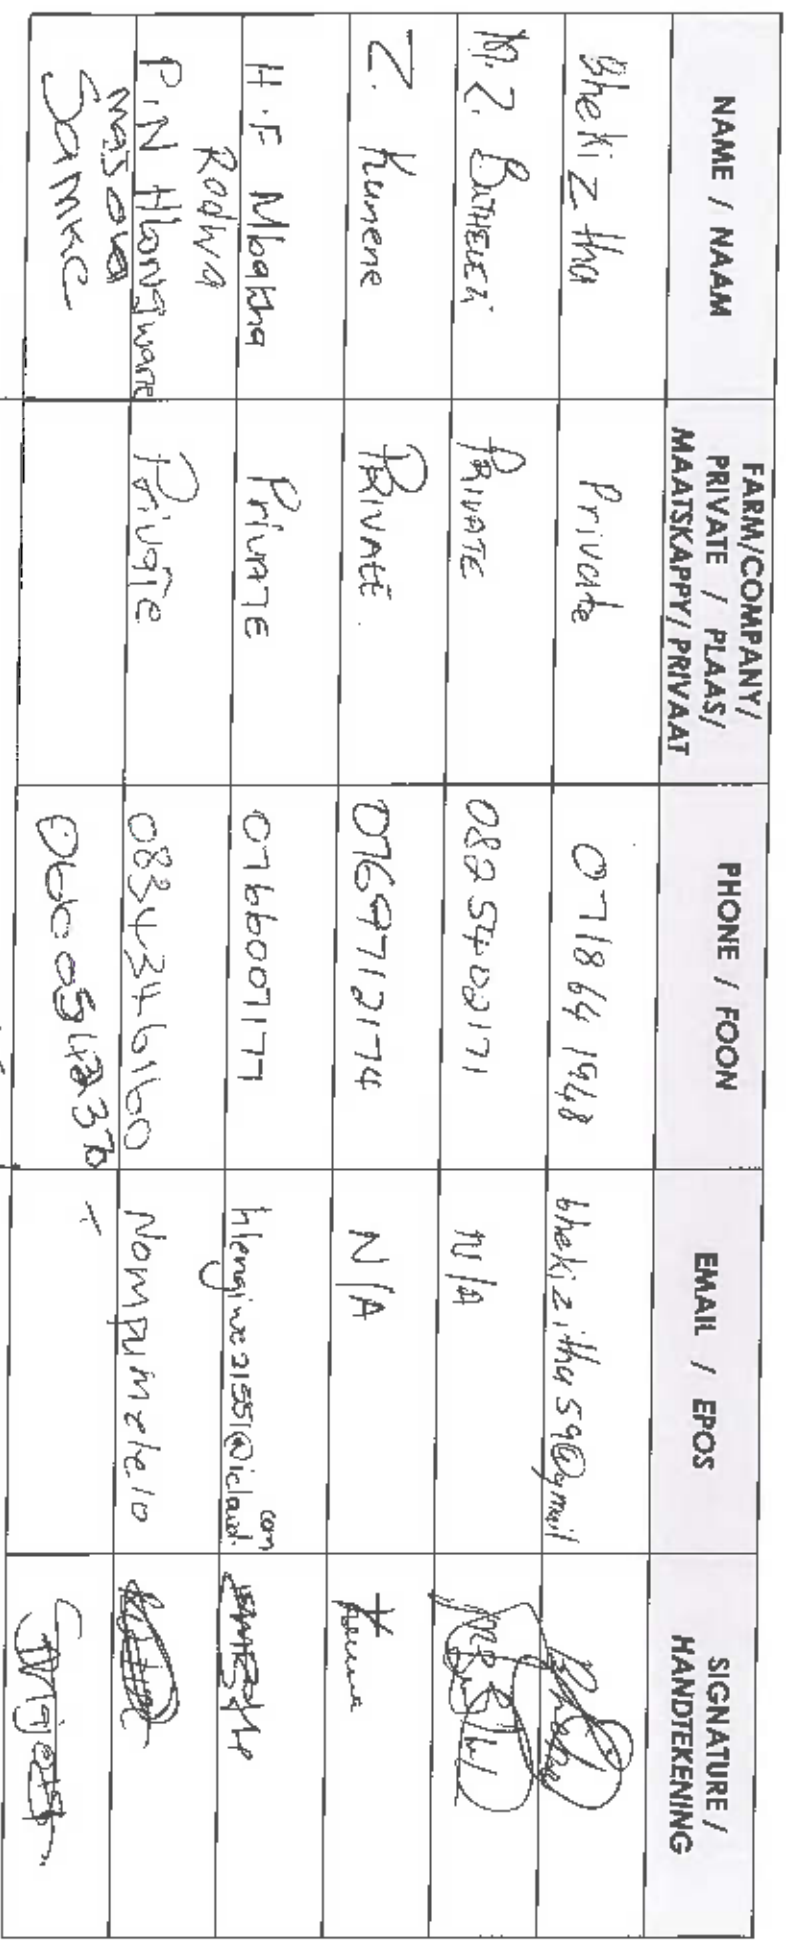 NAME / NAAM
FARM/COMPANY/
PRIVATE / PLAAS/
MAATSKAPPY/ PRIVAAT
PHONE / FOON
EMAIL / EPOS
SIGNATURE /
HANDTEKENING
Bhekiztha
Private
071864 1968
bhekizithu59@gmail
M.Z. BUTHELEZi
PRIVATE
0825402171
N/A
Z. Kunene
PRIVATE
0769712174
N/A
Kunene
H.F Mbatha
PrivATE
0766007177
hlengiwe21551@icloud.
com
Rodwa
P.N Hlongwane
Private
0834346160
Nompumelelo
Samke